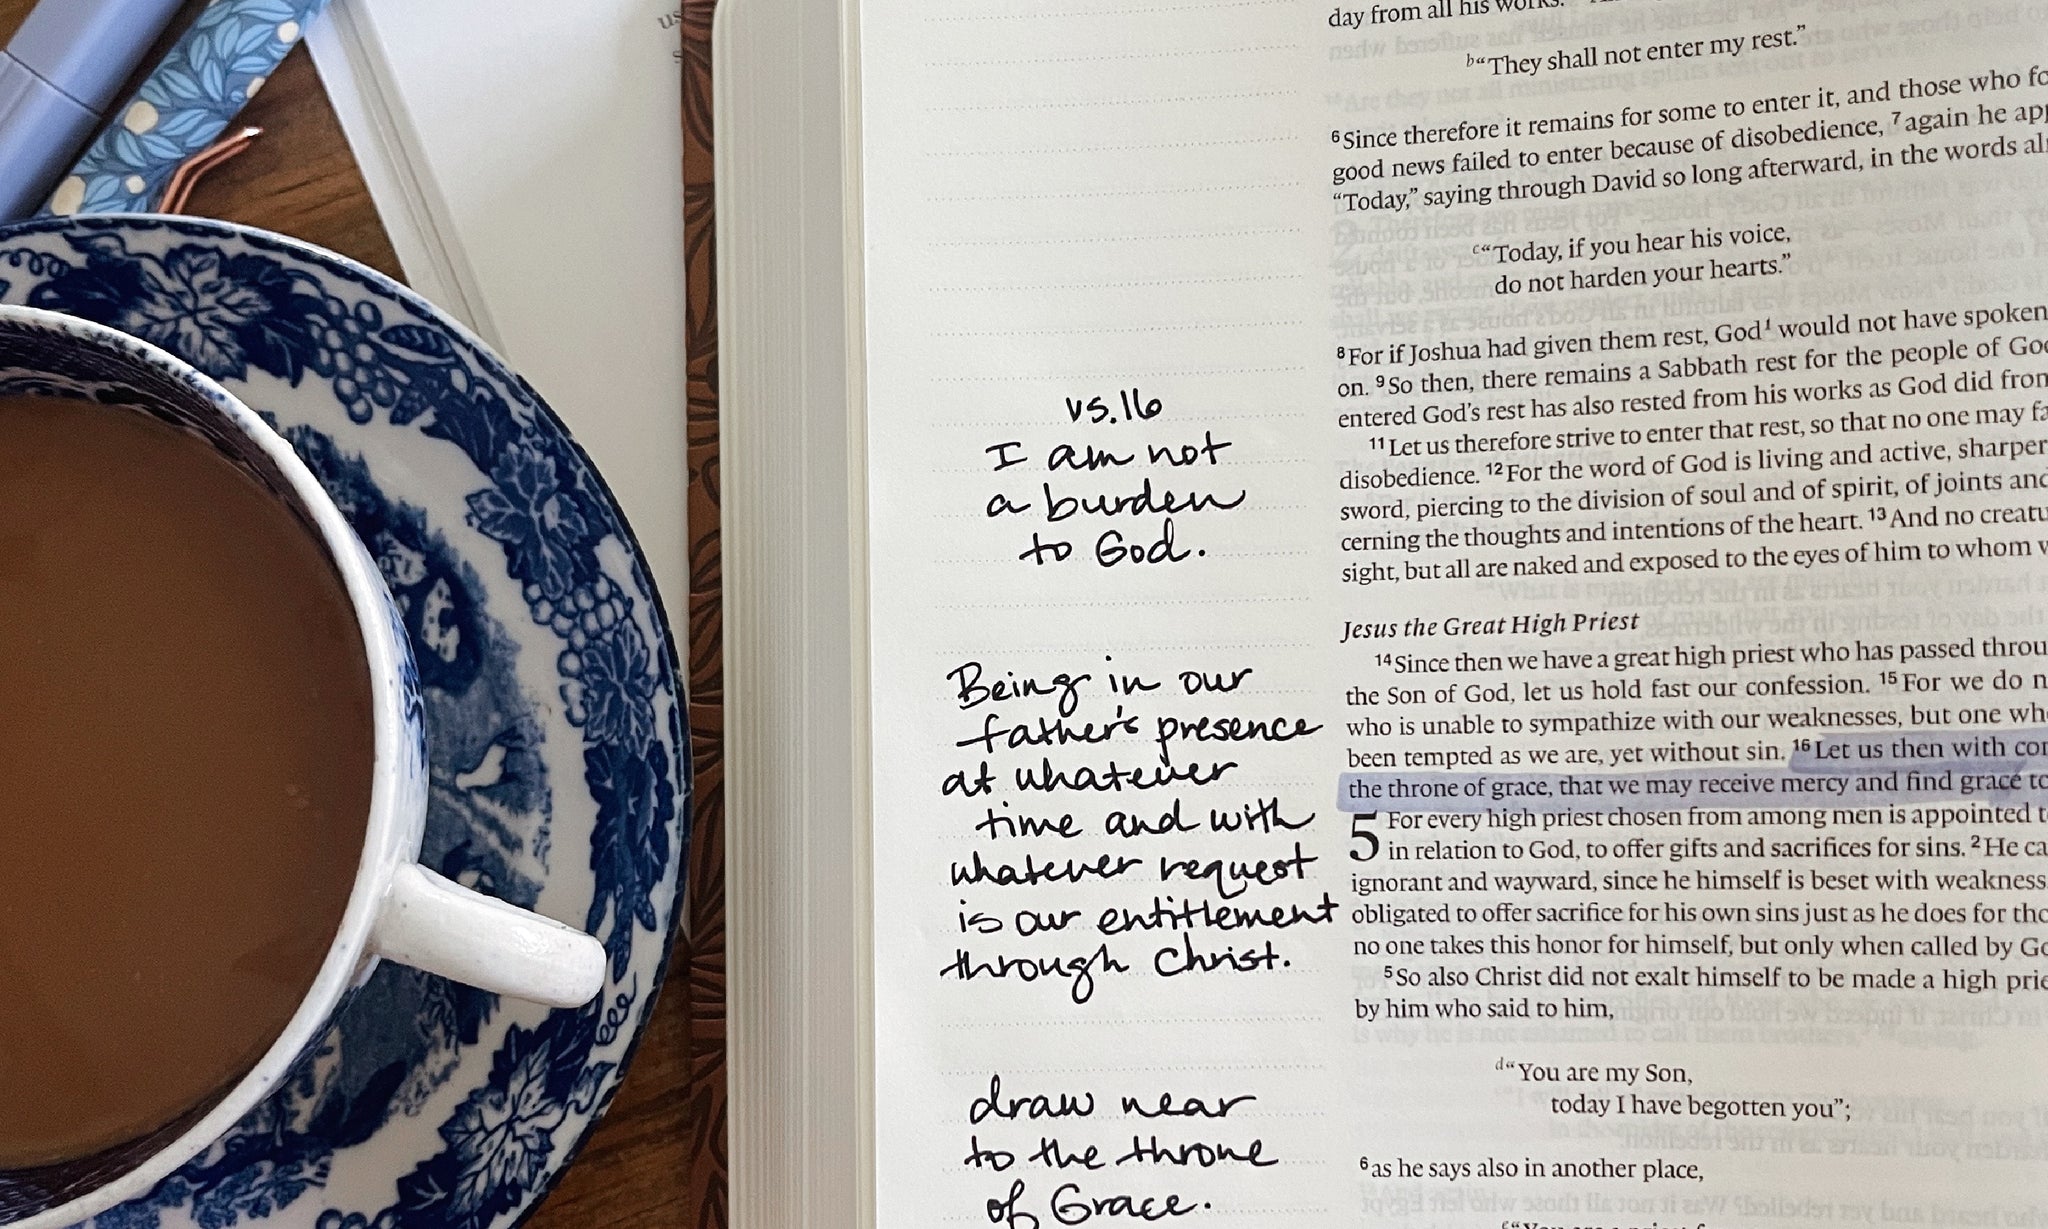 us
s
vs.16
I am not
a burden
to God.
Being in our
father's presence
at whatever
time and with
whatever request
is our entitlement
through Christ.
draw near
to the throne
of Grace.
day from all his works."
b“They shall not enter my rest.”
6 Since therefore it remains for some to enter it, and those who fo
good news failed to enter because of disobedience, 7 again he app
“Today,” saying through David so long afterward, in the words al
c“Today, if you hear his voice,
do not harden your hearts.”
8 For if Joshua had given them rest, God1 would not have spoken
on. 9 So then, there remains a Sabbath rest for the people of Go
entered God’s rest has also rested from his works as God did from
11 Let us therefore strive to enter that rest, so that no one may fa
disobedience. 12 For the word of God is living and active, sharper
sword, piercing to the division of soul and of spirit, of joints and
cerning the thoughts and intentions of the heart. 13 And no creatu
sight, but all are naked and exposed to the eyes of him to whom w
Jesus the Great High Priest
14 Since then we have a great high priest who has passed throu
the Son of God, let us hold fast our confession. 15 For we do n
who is unable to sympathize with our weaknesses, but one wh
been tempted as we are, yet without sin. 16 Let us then with con
the throne of grace, that we may receive mercy and find grace to
5 For every high priest chosen from among men is appointed t
in relation to God, to offer gifts and sacrifices for sins. 2 He ca
ignorant and wayward, since he himself is beset with weakness
obligated to offer sacrifice for his own sins just as he does for tho
no one takes this honor for himself, but only when called by Go
5 So also Christ did not exalt himself to be made a high prie
by him who said to him,
d“You are my Son,
today I have begotten you”;
6 as he says also in another place,